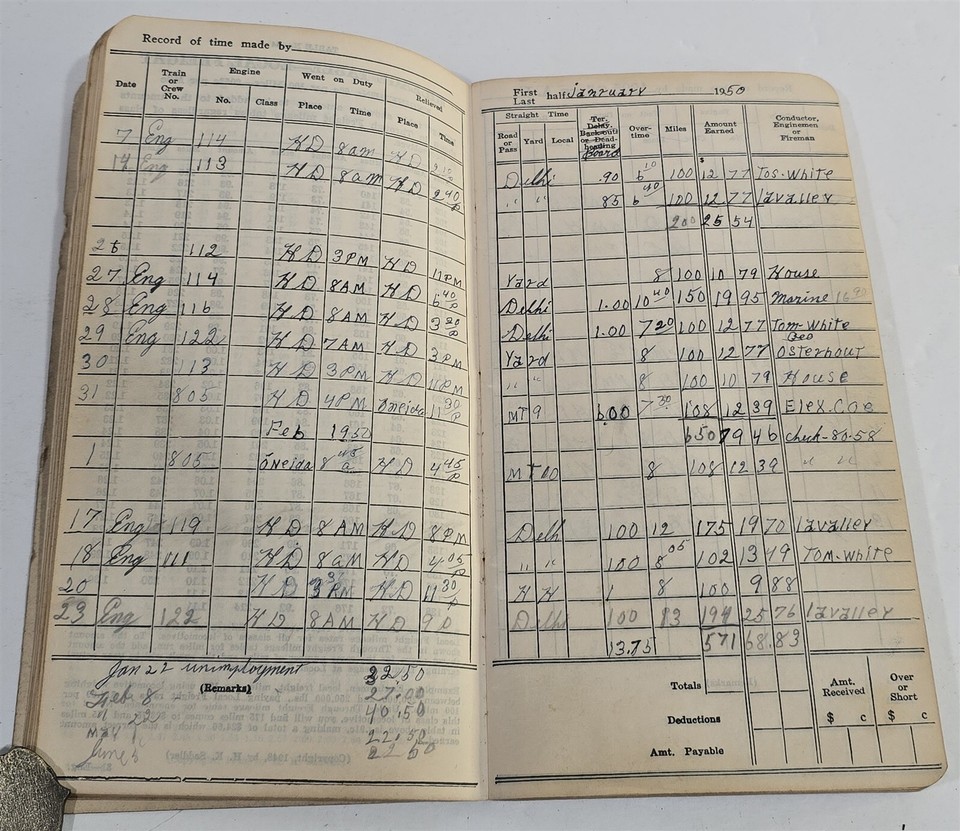 Record of time made by
Date Train or Crew No. Engine No. Class Went on Duty Place Time Relieved Place Time
7 Eng 114 HD 8am HD
14 Eng 113 HD 8am HD 2 40 P
112 HD 3PM HD 11PM
27 Eng 114 HD 8AM HD 6 40 P
28 Eng 116 HD 8AM HD 3 20 P
29 Eng 122 HD 7AM HD 3PM
30 113 HD 3PM HD 11PM
31 805 HD 4PM Oneida 11 30 P
Feb 1950
1 805 Oneida 8 45 a HD 4 45 P
17 Eng 119 HD 8AM HD 8PM
18 Eng 111 HD 8am HD 4 05 P
20 HD PM HD 11 30 P
23 Eng 122 HD 8AM HD 9
(Remarks)
Jan 22 unimployment 22.50
Feb 8 - 27.00
" 23 40.50
May 1 22.50
June 8 22 50
First Last half January 1950
Straight Time Road or Pass Yard Local Ter. Delay Back-out or Dead-heading Board Over-time Miles Amount Earned Conductor, Enginemen or Fireman
Delhi .90 6 10 100 $ 12 77 Jos. White
" " 85 6 40 100 12 77 Lavalley
200 25 54
Yard 8 100 10 79 House
Delhi 1.00 10 40 150 19 95 Marine
Delhi 1.00 7 20 100 12 77 Tom-White
Yard 8 100 12 77 Geo Osterhout
" " 8 100 10 79 House
MT 9 6.00 7 30 108 12 39 Elex. Coe
650 79 46 check-80.58
MT 10 8 108 12 39 " "
Delh 100 12 175 19 70 Lavalley
" " 100 8 05 102 13 49 Tom-White
HH 1 8 100 9 88
Delhi 100 13 194 25 76 Lavalley
13.75 571 68.83
Totals
Deductions
Amt. Payable
Amt. Received $ c
Over or Short $ c